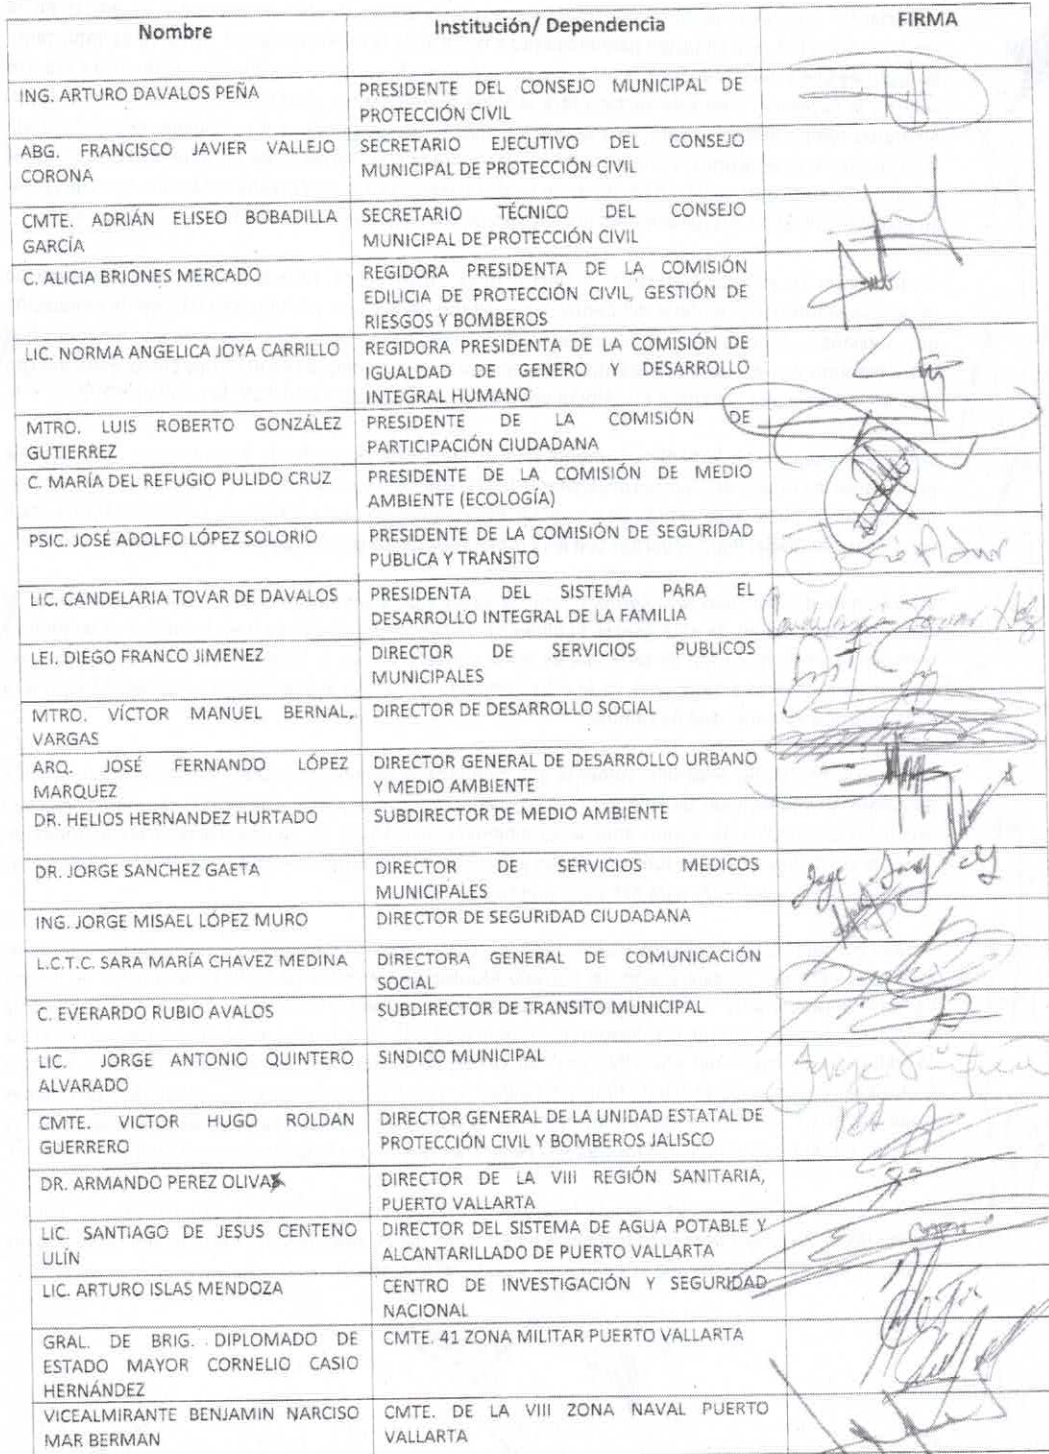 Nombre Institución/ Dependencia FIRMA
ING. ARTURO DAVALOS PEÑA PRESIDENTE DEL CONSEJO MUNICIPAL DE
PROTECCIÓN CIVIL
ABG. FRANCISCO JAVIER VALLEJO SECRETARIO EJECUTIVO DEL CONSEJO
CORONA MUNICIPAL DE PROTECCIÓN CIVIL
CMTE. ADRIÁN ELISEO BOBADILLA SECRETARIO TÉCNICO DEL CONSEJO
GARCÍA MUNICIPAL DE PROTECCIÓN CIVIL
C. ALICIA BRIONES MERCADO REGIDORA PRESIDENTA DE LA COMISIÓN
EDILICIA DE PROTECCIÓN CIVIL, GESTIÓN DE
RIESGOS Y BOMBEROS
LIC. NORMA ANGELICA JOYA CARRILLO REGIDORA PRESIDENTA DE LA COMISIÓN DE
IGUALDAD DE GENERO Y DESARROLLO
INTEGRAL HUMANO
MTRO. LUIS ROBERTO GONZÁLEZ PRESIDENTE DE LA COMISIÓN DE
GUTIERREZ PARTICIPACIÓN CIUDADANA
C. MARÍA DEL REFUGIO PULIDO CRUZ PRESIDENTE DE LA COMISIÓN DE MEDIO
AMBIENTE (ECOLOGÍA)
PSIC. JOSÉ ADOLFO LÓPEZ SOLORIO PRESIDENTE DE LA COMISIÓN DE SEGURIDAD
PUBLICA Y TRANSITO
LIC. CANDELARIA TOVAR DE DAVALOS PRESIDENTA DEL SISTEMA PARA EL
DESARROLLO INTEGRAL DE LA FAMILIA Candelaria Tovar
LEI. DIEGO FRANCO JIMENEZ DIRECTOR DE SERVICIOS PUBLICOS
MUNICIPALES
MTRO. VÍCTOR MANUEL BERNAL, DIRECTOR DE DESARROLLO SOCIAL
VARGAS
ARQ. JOSÉ FERNANDO LÓPEZ DIRECTOR GENERAL DE DESARROLLO URBANO
MARQUEZ Y MEDIO AMBIENTE
DR. HELIOS HERNANDEZ HURTADO SUBDIRECTOR DE MEDIO AMBIENTE
DR. JORGE SANCHEZ GAETA DIRECTOR DE SERVICIOS MEDICOS
MUNICIPALES Jorge
ING. JORGE MISAEL LÓPEZ MURO DIRECTOR DE SEGURIDAD CIUDADANA
L.C.T.C. SARA MARÍA CHAVEZ MEDINA DIRECTORA GENERAL DE COMUNICACIÓN
SOCIAL
C. EVERARDO RUBIO AVALOS SUBDIRECTOR DE TRANSITO MUNICIPAL
LIC. JORGE ANTONIO QUINTERO SINDICO MUNICIPAL
ALVARADO
CMTE. VICTOR HUGO ROLDAN DIRECTOR GENERAL DE LA UNIDAD ESTATAL DE
GUERRERO PROTECCIÓN CIVIL Y BOMBEROS JALISCO
DR. ARMANDO PEREZ OLIVAS DIRECTOR DE LA VIII REGIÓN SANITARIA,
PUERTO VALLARTA
LIC. SANTIAGO DE JESUS CENTENO DIRECTOR DEL SISTEMA DE AGUA POTABLE Y
ULÍN ALCANTARILLADO DE PUERTO VALLARTA
LIC. ARTURO ISLAS MENDOZA CENTRO DE INVESTIGACIÓN Y SEGURIDAD
NACIONAL
GRAL. DE BRIG. DIPLOMADO DE CMTE. 41 ZONA MILITAR PUERTO VALLARTA
ESTADO MAYOR CORNELIO CASIO
HERNÁNDEZ
VICEALMIRANTE BENJAMIN NARCISO CMTE. DE LA VIII ZONA NAVAL PUERTO
MAR BERMAN VALLARTA